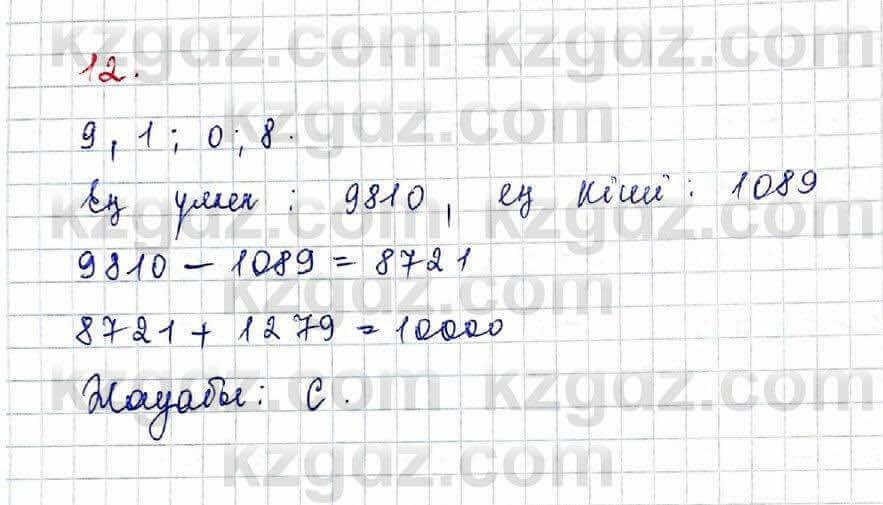 12.
9, 1; 0; 8.
Ең үлкен : 9810, ең кіші : 1089
9810 - 1089 = 8721
8721 + 1279 = 10000
Жауабы : С.
kzgdz.com kzgdz.com
kzgdz.com
kzgdz.com kzgdz.com
kzgdz.com
kzgdz.com kzgdz.com
kzgdz.com